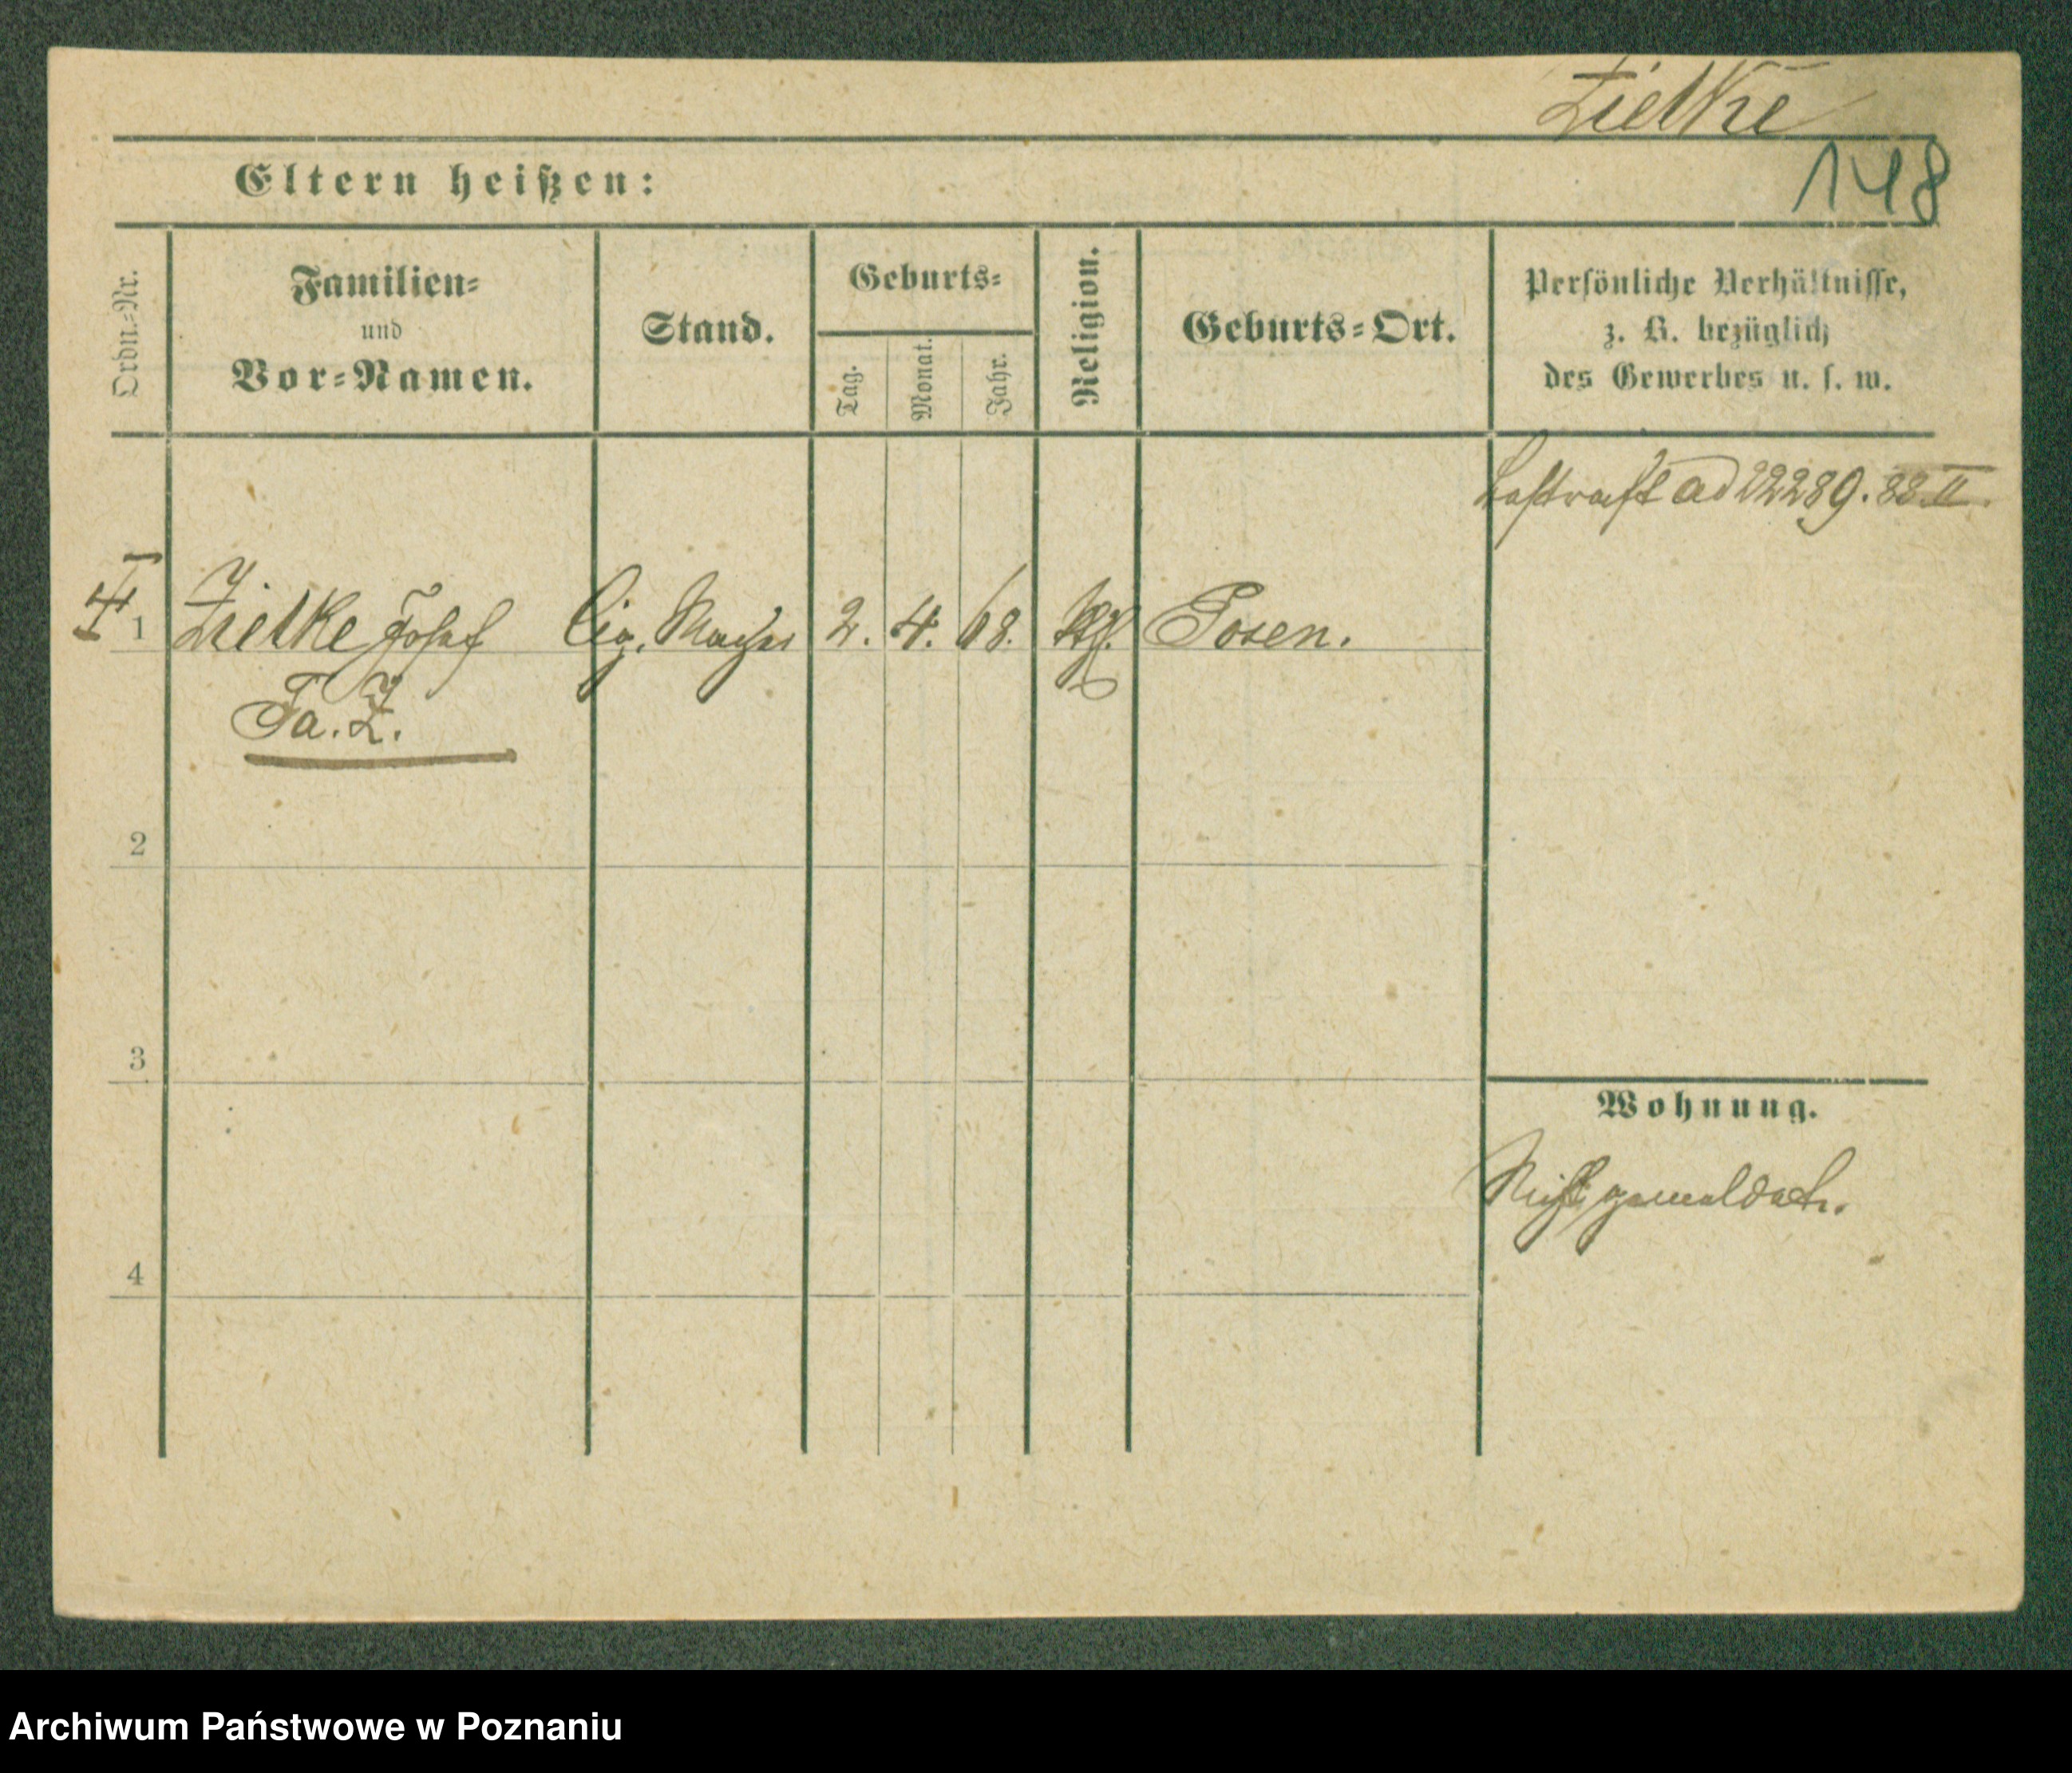 Zielke
148
Eltern heißen:
Ordn.-Nr.
Familien-
und
Vor-Namen.
Stand.
Geburts-
Tag.
Monat.
Jahr.
Religion.
Geburts-Ort.
Persönliche Verhältnisse,
z. B. bezüglich
des Gewerbes u. s. w.
bestraft ad 22289.88.II.
1 Zielke Josef Cig. Macher 2. 4. 68. Kth. Posen.
Fa. Z.
2
3
Wohnung.
Nicht gemeldet.
4
Archiwum Państwowe w Poznaniu